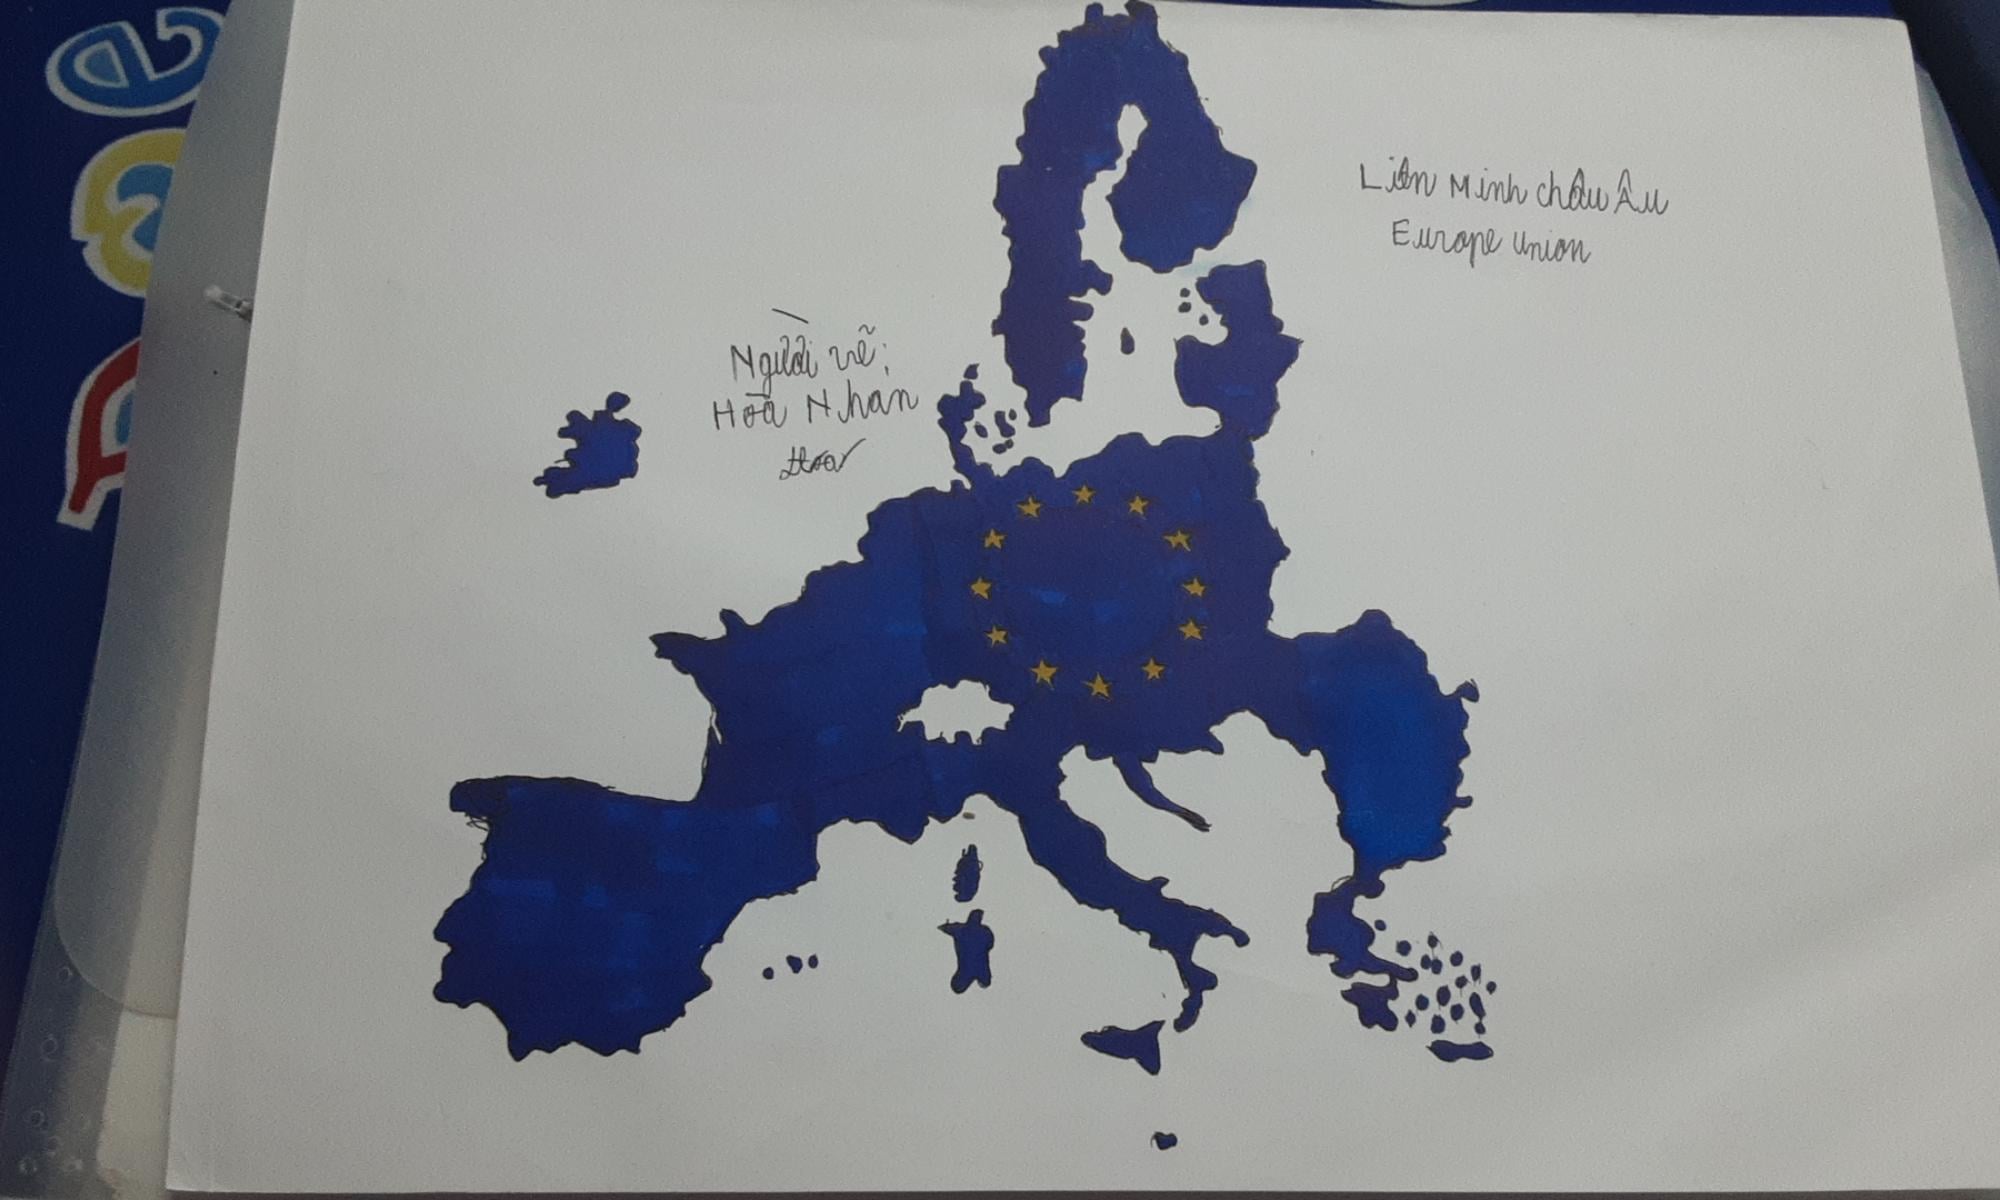 Liên Minh châu Âu
Europe Union
Người vẽ:
Hòa Nhan